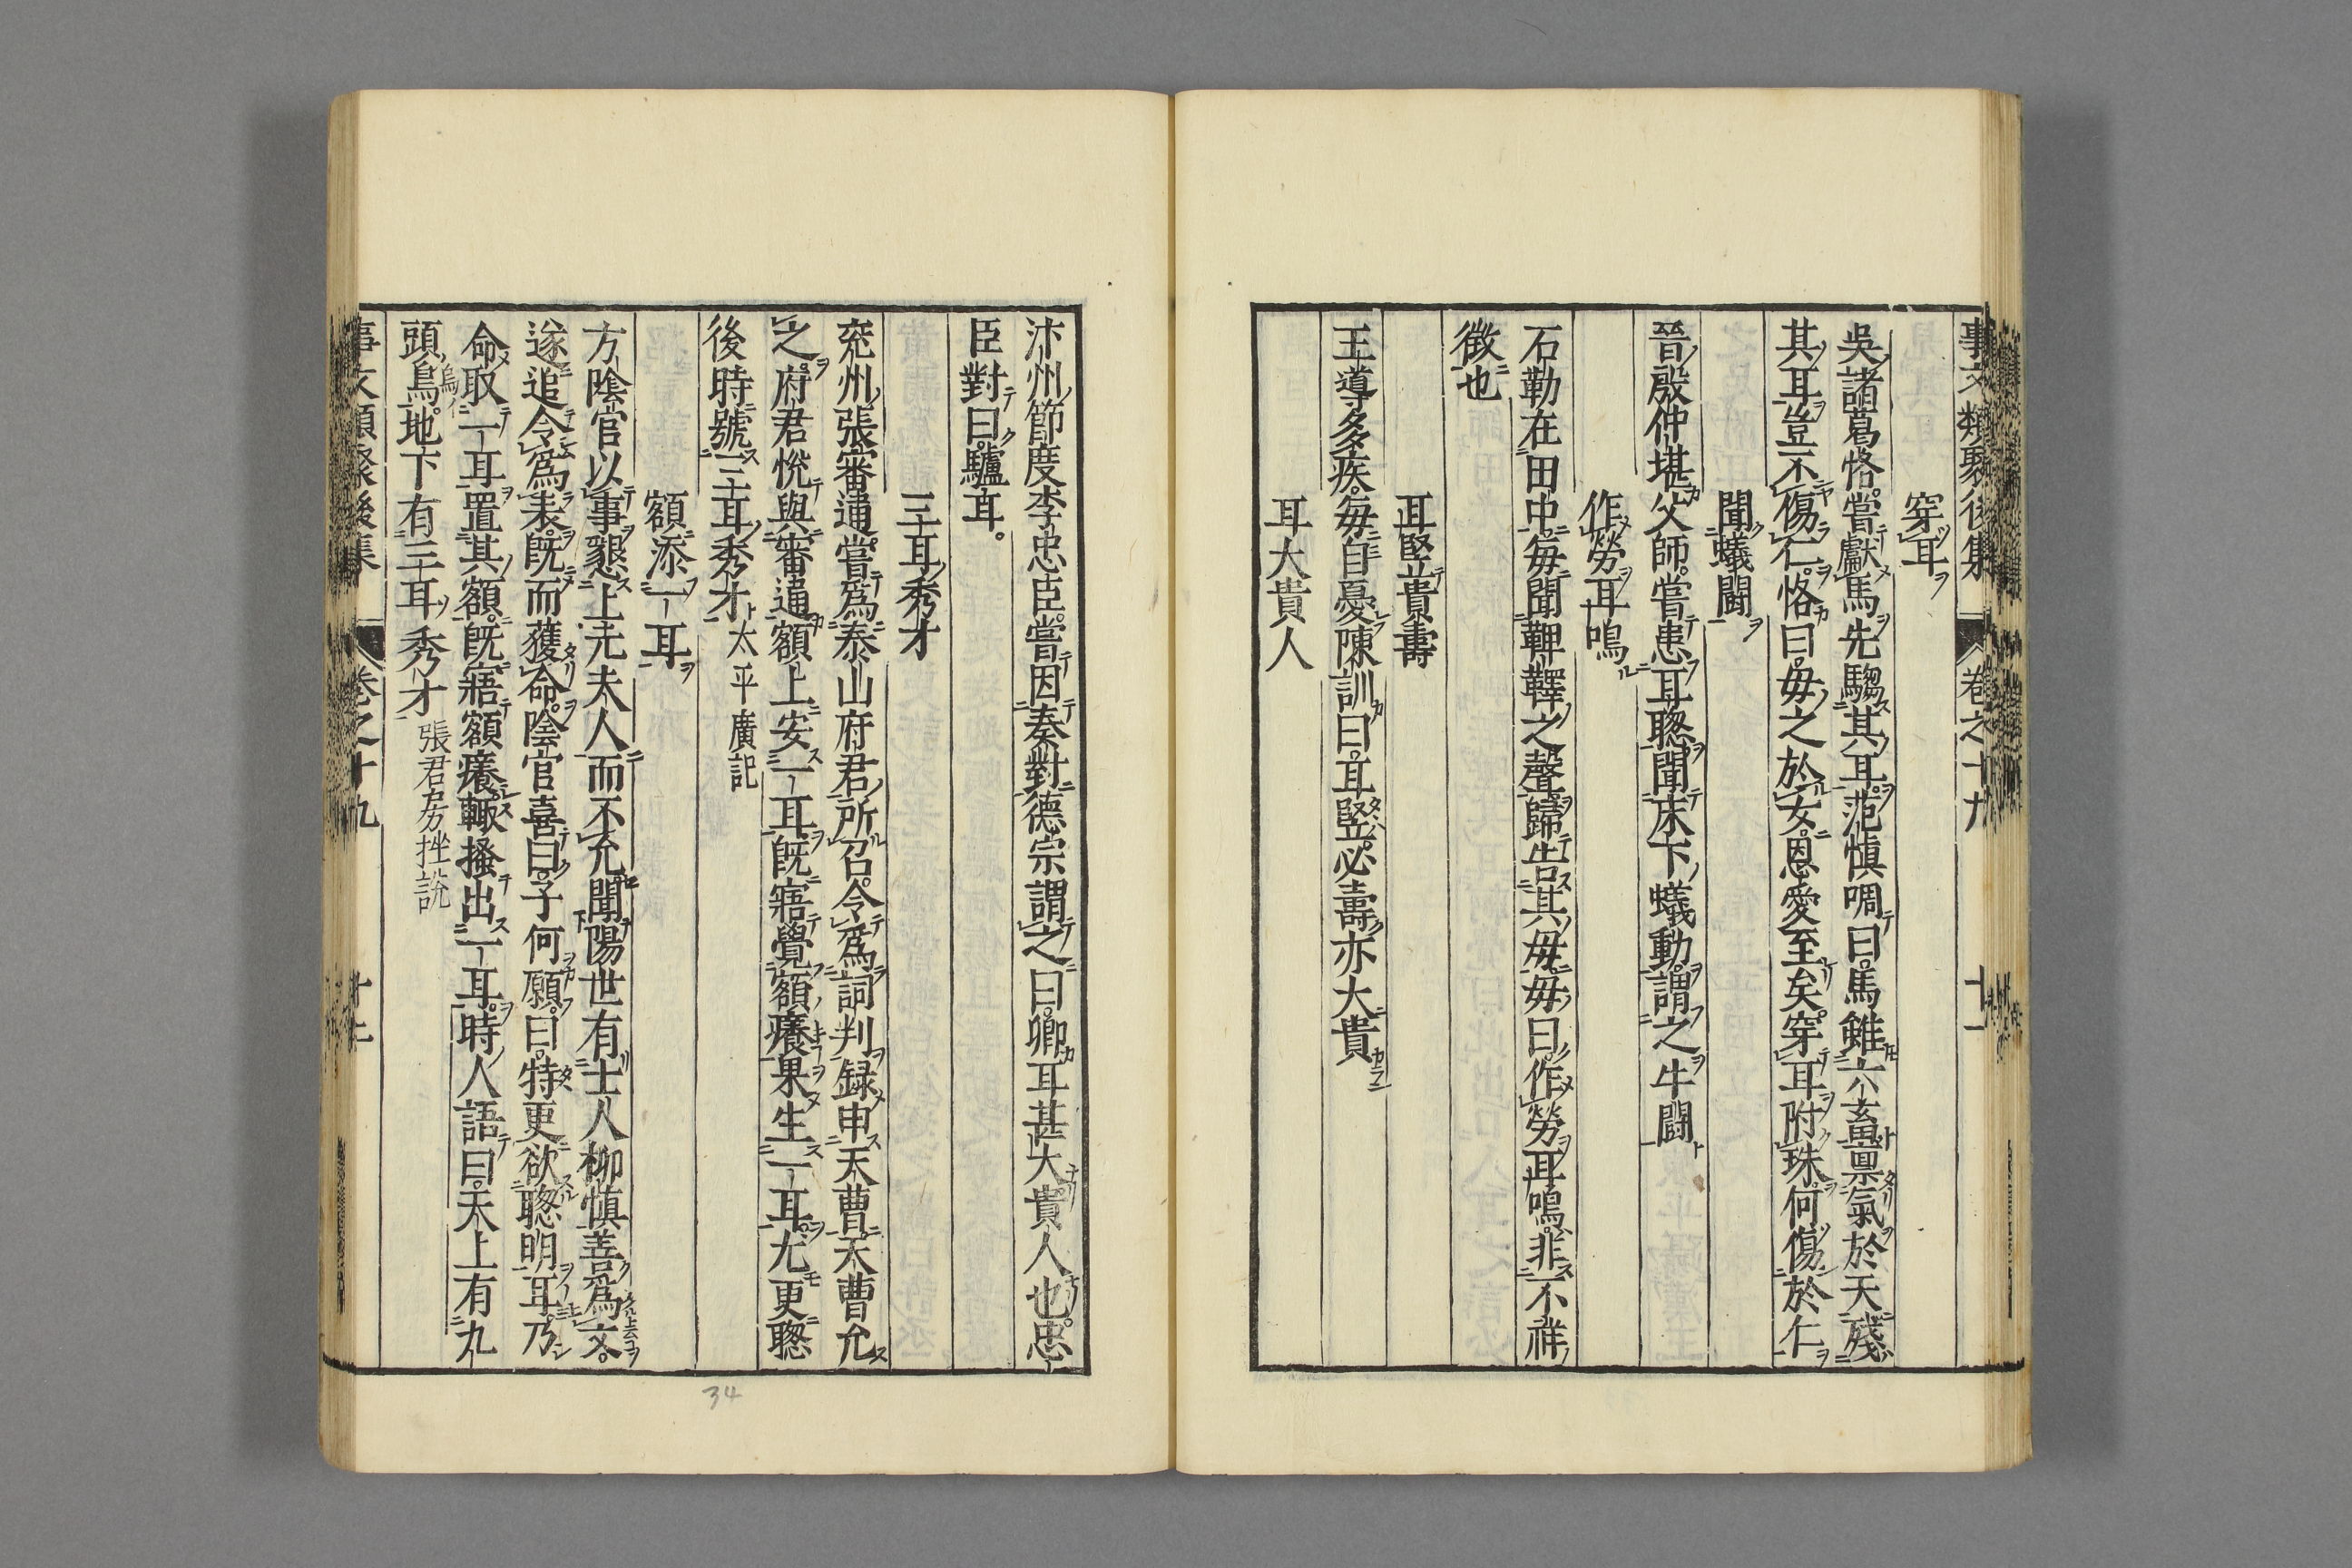 事文類聚後集　卷之十九　十一
穿耳
吳諸葛恪嘗獻馬先䮍其耳范愼啁曰馬雖六畜稟氣於天殘
其耳豈不傷仁恪曰毋之於女恩愛至矣穿耳附珠何傷於仁
聞蟻鬪
晉殷仲堪父師嘗患耳聰聞床下蟻動謂之牛鬪
作勞耳鳴
石勒在田中每聞鞞鐸之聲歸告其毋毋曰作勞耳鳴非不祥
徵也
耳竪貴壽
王導多疾每自憂陳訓曰耳竪必壽亦大貴
耳大貴人
汴州節度李忠臣嘗因奏對德宗謂之曰卿耳甚大貴人也忠
臣對曰驢耳
三耳秀才
兖州張審通嘗爲泰山府君所召令爲詞判録申天曹天曹允
之府君恱與審通額上安一耳既寤覺額癢果生一耳尤更聰
後時號三耳秀才太平廣記
額添一耳
方陰官以事懇上元夫人而不允聞陽世有士人柳慎善爲文
遂追令爲表既而獲命陰官喜曰子何願曰特更欲聰明耳乃
命取一耳置其額既寤額癢輙搔出一耳時人語曰天上有九
頭鳥地下有三耳秀才張君房挫說
事文類聚後集　卷之十九
34